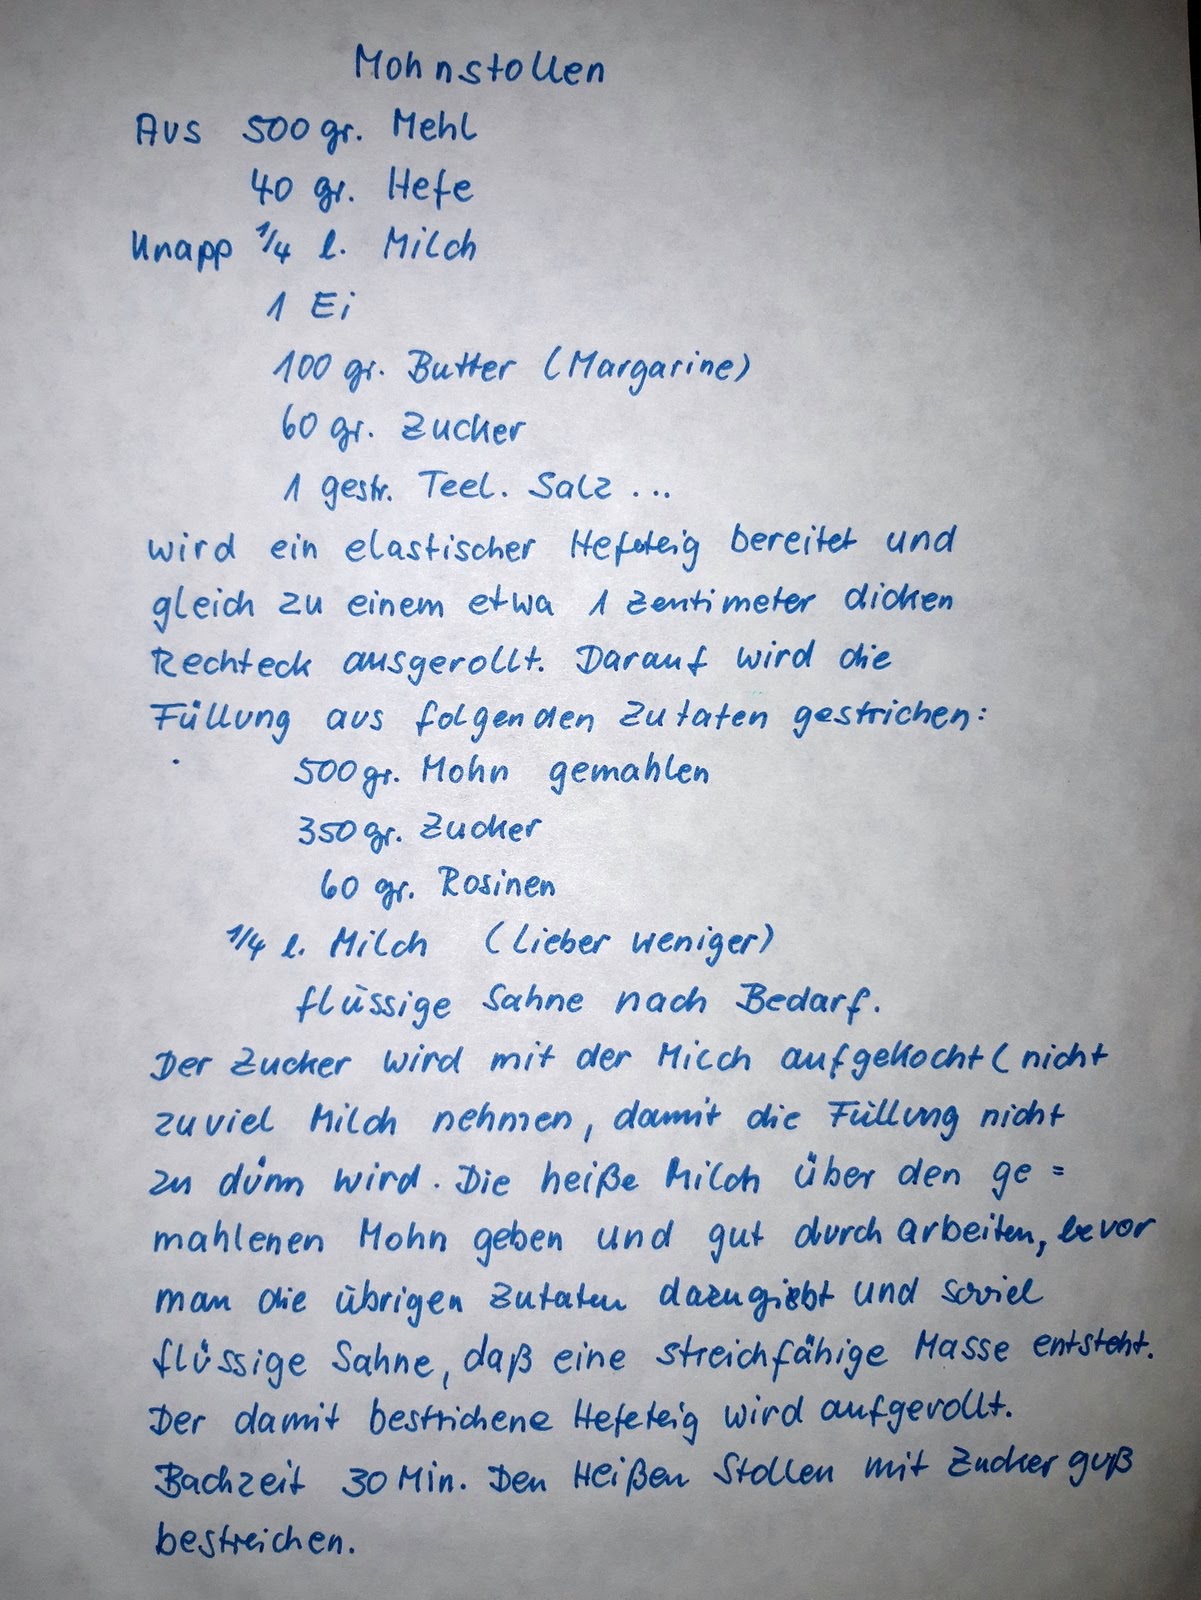 Mohnstollen
Aus 500 gr. Mehl
40 gr. Hefe
Knapp 1/4 l. Milch
1 Ei
100 gr. Butter (Margarine)
60 gr. Zucker
1 gestr. Teel. Salz ...
wird ein elastischer Hefeteig bereitet und
gleich zu einem etwa 1 Zentimeter dicken
Rechteck ausgerollt. Darauf wird die
Füllung aus folgenden Zutaten gestrichen:
500 gr. Mohn gemahlen
350 gr. Zucker
60 gr. Rosinen
1/4 l. Milch (lieber weniger)
flüssige Sahne nach Bedarf.
Der Zucker wird mit der Milch aufgekocht (nicht
zuviel Milch nehmen, damit die Füllung nicht
zu dünn wird. Die heiße Milch über den ge=
mahlenen Mohn geben und gut durch arbeiten, bevor
man die übrigen Zutaten dazugiebt und soviel
flüssige Sahne, daß eine streichfähige Masse entsteht.
Der damit bestrichene Hefeteig wird aufgerollt.
Backzeit 30 Min. Den Heißen Stollen mit Zucker guß
bestreichen.